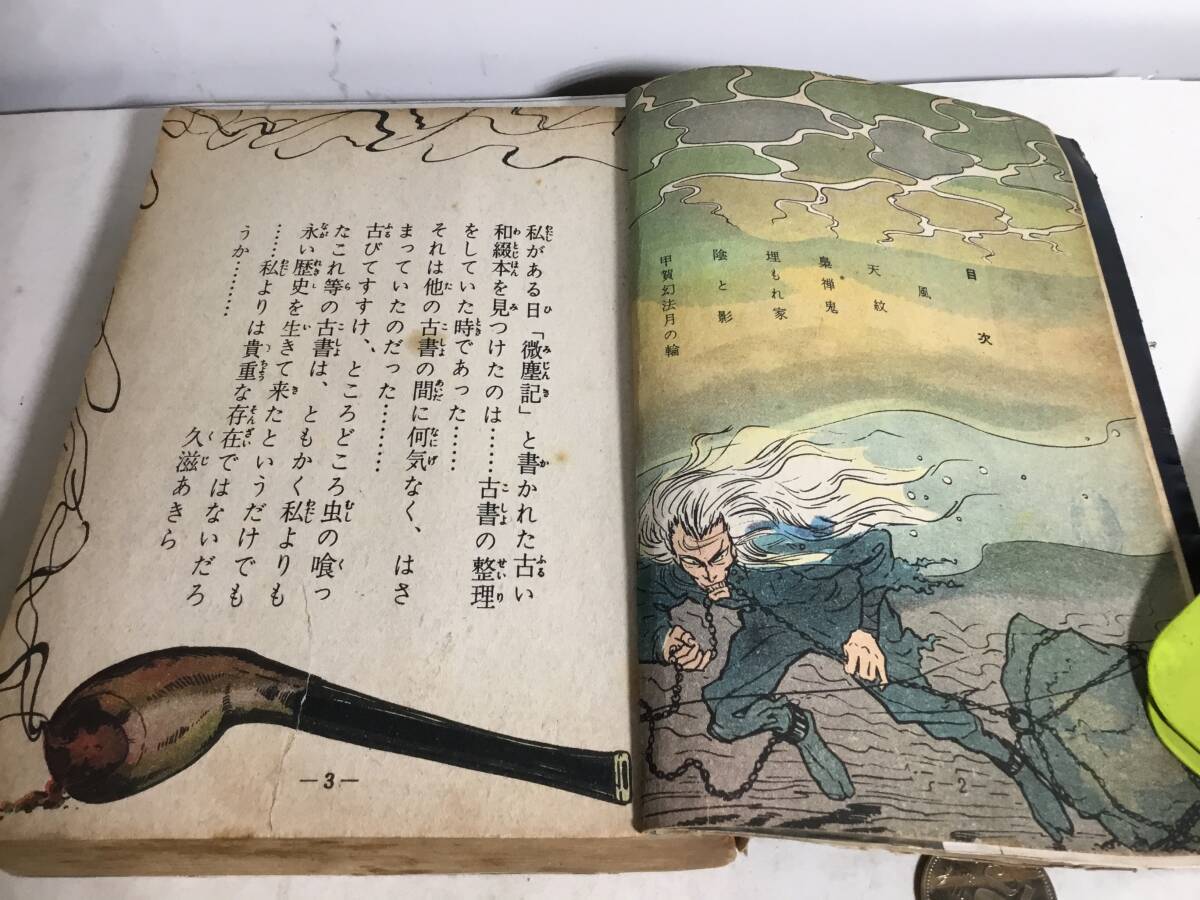 目次
風
天紋
梟禅鬼
埋もれ家
陰と影
甲賀幻法月の輪
2
私がある日「微塵記」と書かれた古い
和綴本を見つけたのは……古書の整理
をしていた時であった……
それは他の古書の間に何気なく、はさ
まっていたのだった…………
古びてすすけ、ところどころ虫の喰っ
たこれ等の古書は、ともかく私よりも
永い歴史を生きて来たというだけでも
……私よりは貴重な存在ではないだろ
うか…………
久滋あきら
—3—